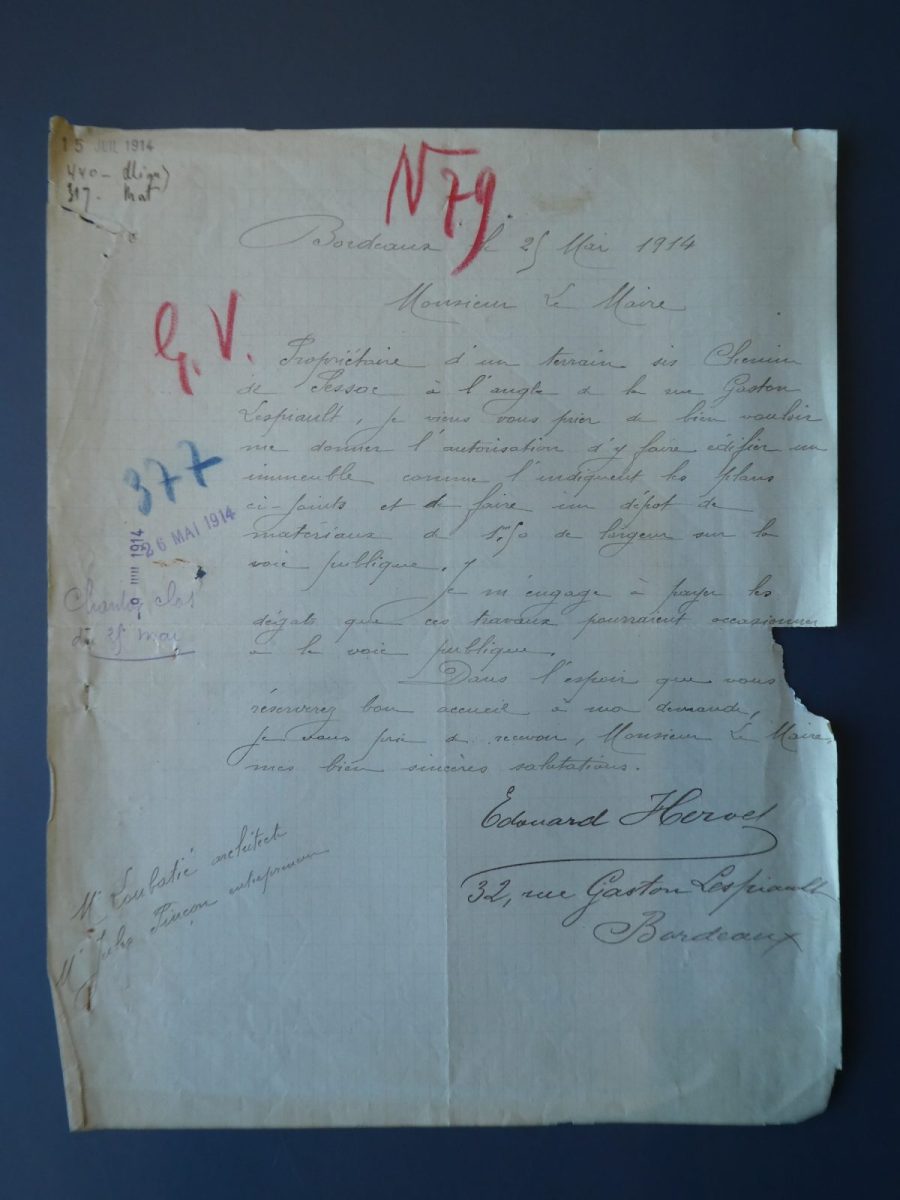 15 JUIL 1914
440 - Align)
317 - Mat
N 79
Bordeaux le 25 Mai 1914
Monsieur Le Maire
G. V.
Propriétaire d'un terrain sis Chemin
de Pessac à l'angle de la rue Gaston
Lespiault, je viens vous prier de bien vouloir
me donner l'autorisation d'y faire édifier un
immeuble comme l'indiquent les plans
ci-joints et de faire un dépot de
matériaux de 1.m50 de largeur sur la
voie publique.
377
26 MAI 1914
1914
Chantier clos
du 25 mai
Je m'engage à payer les
dégats que ces travaux pourraient occasionner
à la voie publique.
Dans l'espoir que vous
réserverez bon accueil à ma demande,
je vous prie de recevoir, Monsieur Le Maire,
mes bien sincères salutations.
Edouard Hervet
32, rue Gaston Lespiault
Bordeaux
Mr Loubatié architect
Mr Jules Pinçon entrepreneur